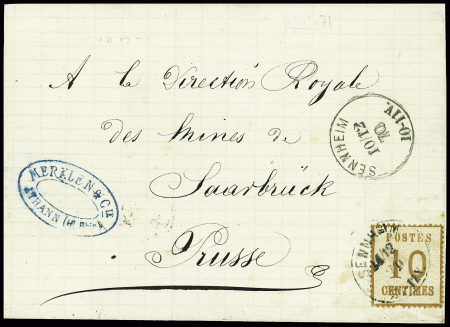 A la Direction Royale
des Mines de
Saarbrück
Prusse
SENNHEIM
10/12
70
10-11V.
MERKLEN & Cie
THANN (Ht Rhin)
SENNHEIM
POSTES
10
CENTIMES